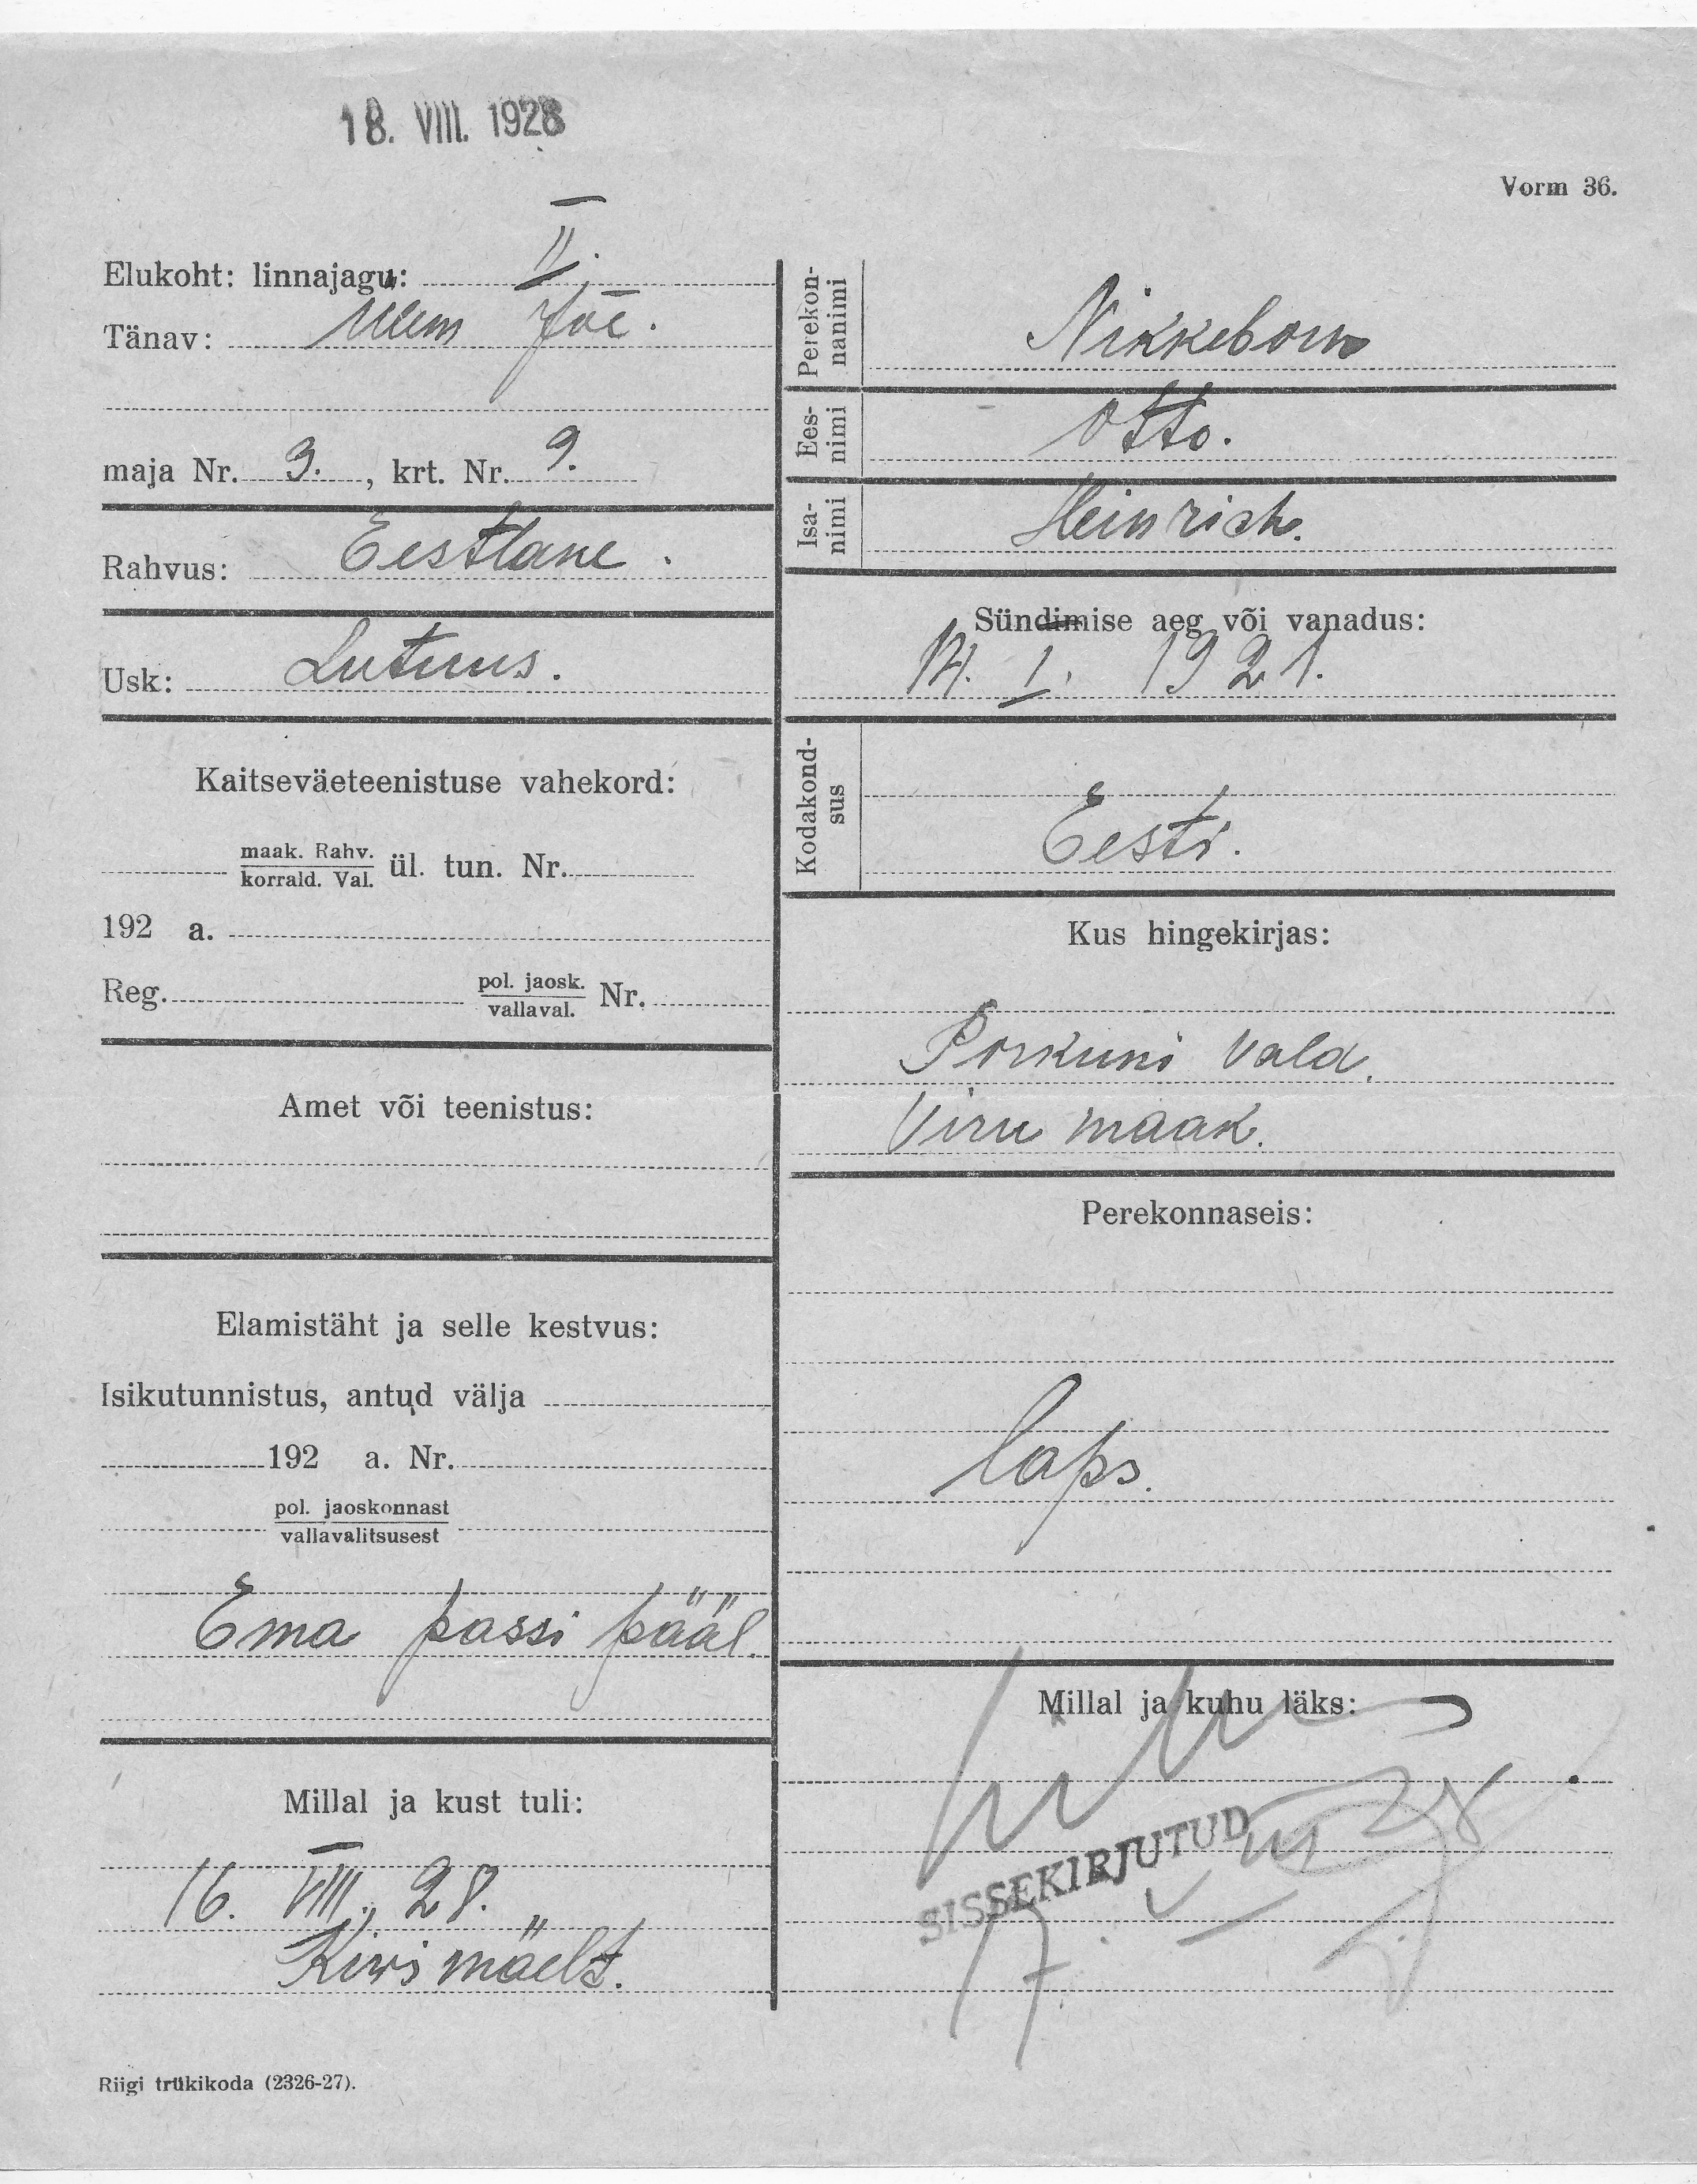 18. VIII. 1928
Vorm 36.
Elukoht: linnajagu: II.
Tänav: Uem Jõe.
maja Nr. 3., krt. Nr. 9.
Rahvus: Eestlane.
Usk: Luterus.
Kaitseväeteenistuse vahekord:
maak. Rahv.
korrald. Val. ül. tun. Nr.
192 a.
Reg. pol. jaosk. Nr.
vallaval.
Amet või teenistus:
Elamistäht ja selle kestvus:
Isikutunnistus, antud välja
192 a. Nr.
pol. jaoskonnast
vallavalitsusest
Ema passi pääl.
Millal ja kust tuli:
16. VIII, 28.
Kivimäelt.
Riigi trükikoda (2326-27).
Perekonnanimi Nikkeborn
Eesnimi Otto.
Isanimi Heinrich.
Sündimise aeg või vanadus:
14. I. 1921.
Kodakondsus
Eesti.
Kus hingekirjas:
Porkuni vald.
Viru maak.
Perekonnaseis:
laps.
Millal ja kuhu läks:
SISSEKIRJUTUD